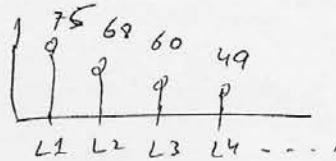 75 68 60 49
L1 L2 L3 L4 - - - .